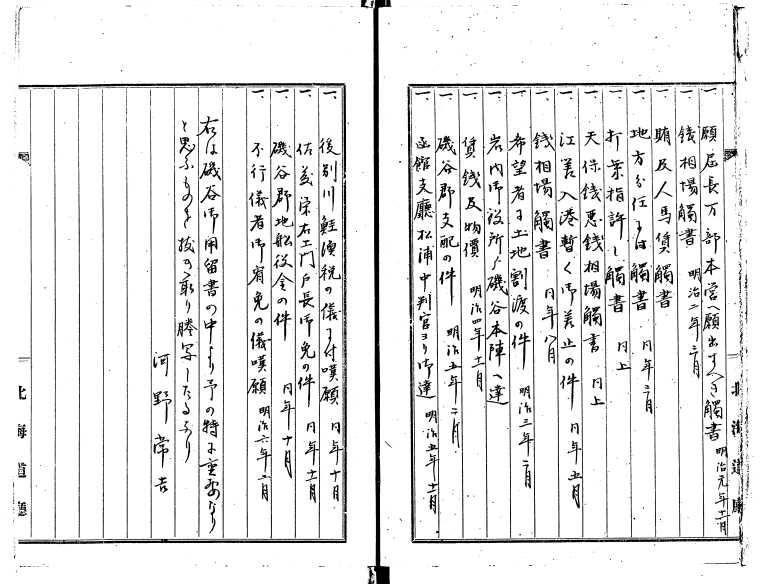 一、願届長万部本営ヘ願出すへき觸書 明治元年十二月
一、銭相場觸書 明治二年二月
一、賄及人馬賃觸書
一、地方分任の觸書 同年三月
一、打荒指許し觸書 同上
一、天保銭悪銭相場觸書 同上
一、江差入港暫く御差止の件 同年五月
一、銭相場觸書 同年八月
一、希望者に土地割渡の件 明治三年二月
一、岩内御役所より磯谷本陣ヘ達
一、賃銭及物價 明治四年十一月
一、磯谷郡支配の件 明治五年二月
一、函館支廳松浦中判官ヨリ御達 明治五年十一月
一、後別川鮭漁税の儀に付嘆願 同年十月
一、佐藤栄右エ門戸長御免の件 同年十一月
一、磯谷郡地船役金の件 同年十月
一、不行儀者御宥免の儀嘆願 明治六年二月
右は磯谷御用留書の中より予の特に重要なり
と思ふものを抜き取り謄写したるなり
河野常吉
北海道廳
北海道廳